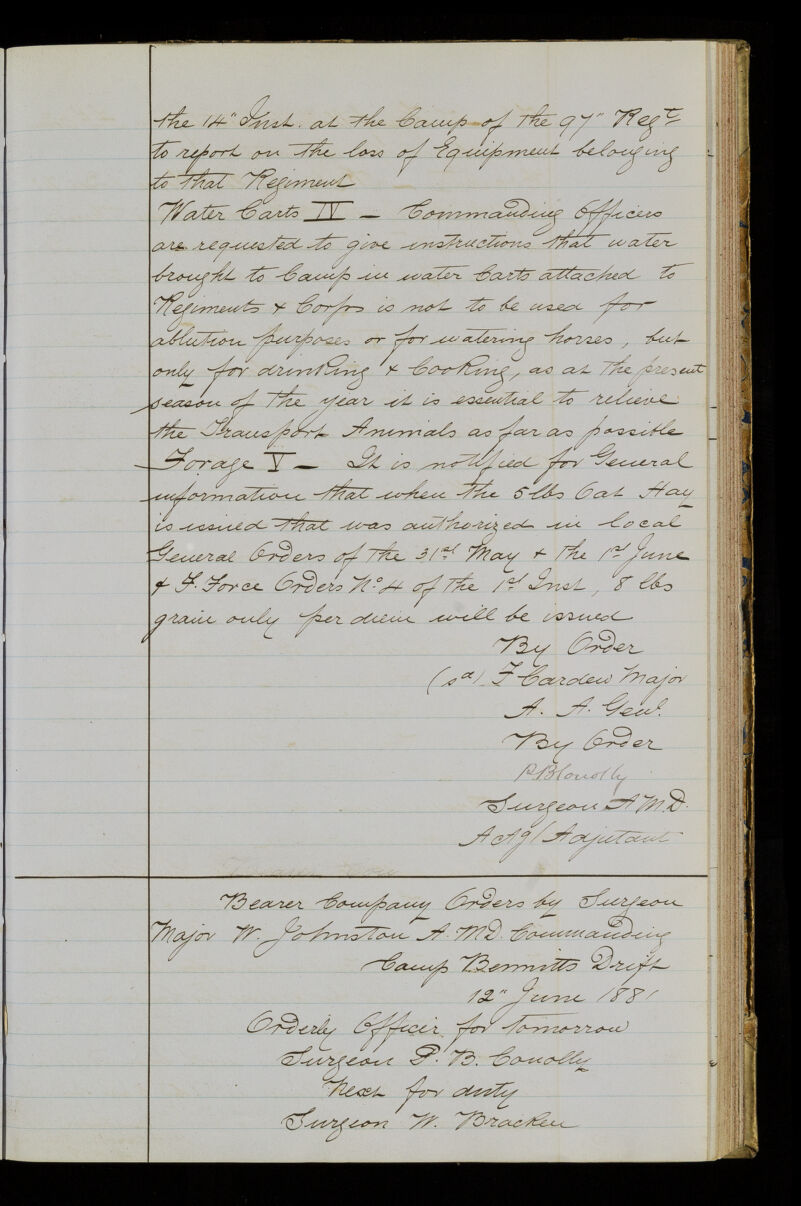 the 14" Inst. at the Camp of the 97" Regt.
to report on the loss of Equipment belonging
to that Regiment
Water Carts IV — Commanding Officers
are requested to give instructions that water
brought to Camp in water Carts attached to
Regiments & Corps is not to be used for
ablution purposes or for watering horses, but
only for drinking & Cooking, as at the present
season of the year it is essential to relieve
the Transport Animals as far as possible
Forage V — It is notified for General
information that when the 5 lbs Oat Hay
is issued that was authorized in local
General Orders of the 31st May & the 1st June
& F. Force Orders No. 4 of the 1st Inst, 8 lbs
grain only per diem will be issued
By Order
(sd) F Cardew Major
A. A. Genl.
By Order
P B Conolly
Surgeon A M.D.
Actg/ Adjutant
Bearer Company Orders by Surgeon
Major W. Johnston A. MD. Commanding
Camp Bennitts Drift
12" June 1881
Orderly Officer for tomorrow
Surgeon P. B. Conolly
Next for duty
Surgeon W. Bracken